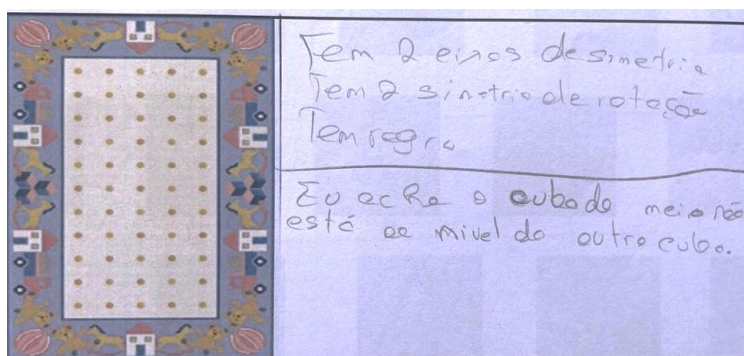 Tem 2 eixos de simetria
Tem 2 simetria de rotação
Tem regra
Eu acho o cubo do meio não
está ao nivel do outro cubo.